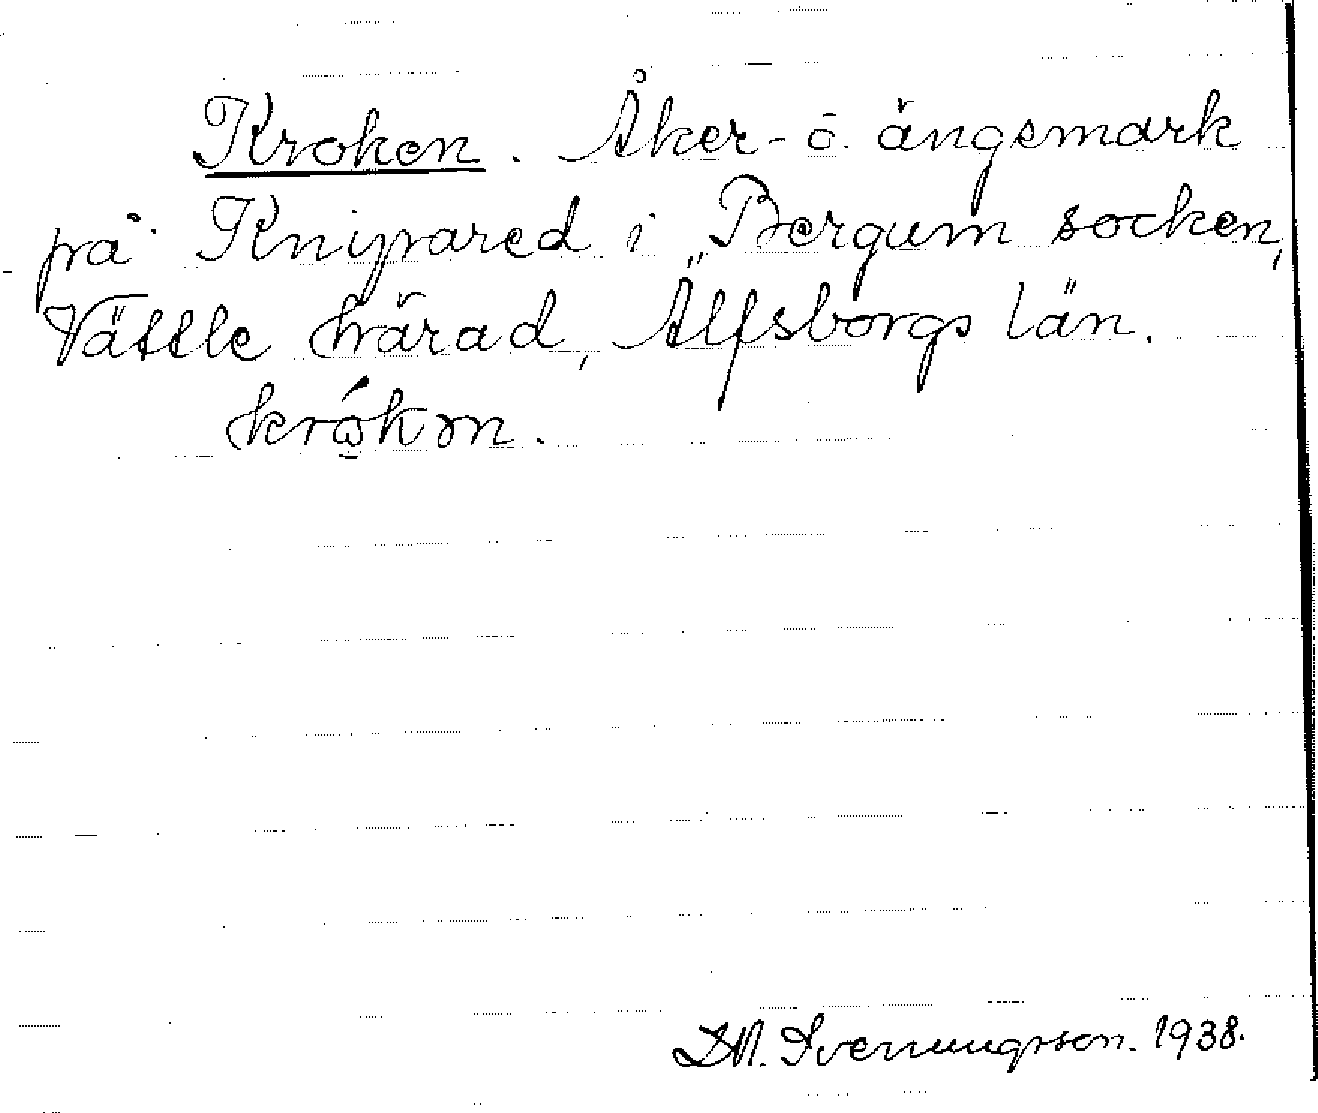 Kroken. Åker- o. ängsmark
på Knipared i Bergum socken,
Vättle härad, Älfsborgs län.
Svenungsson. 1938.